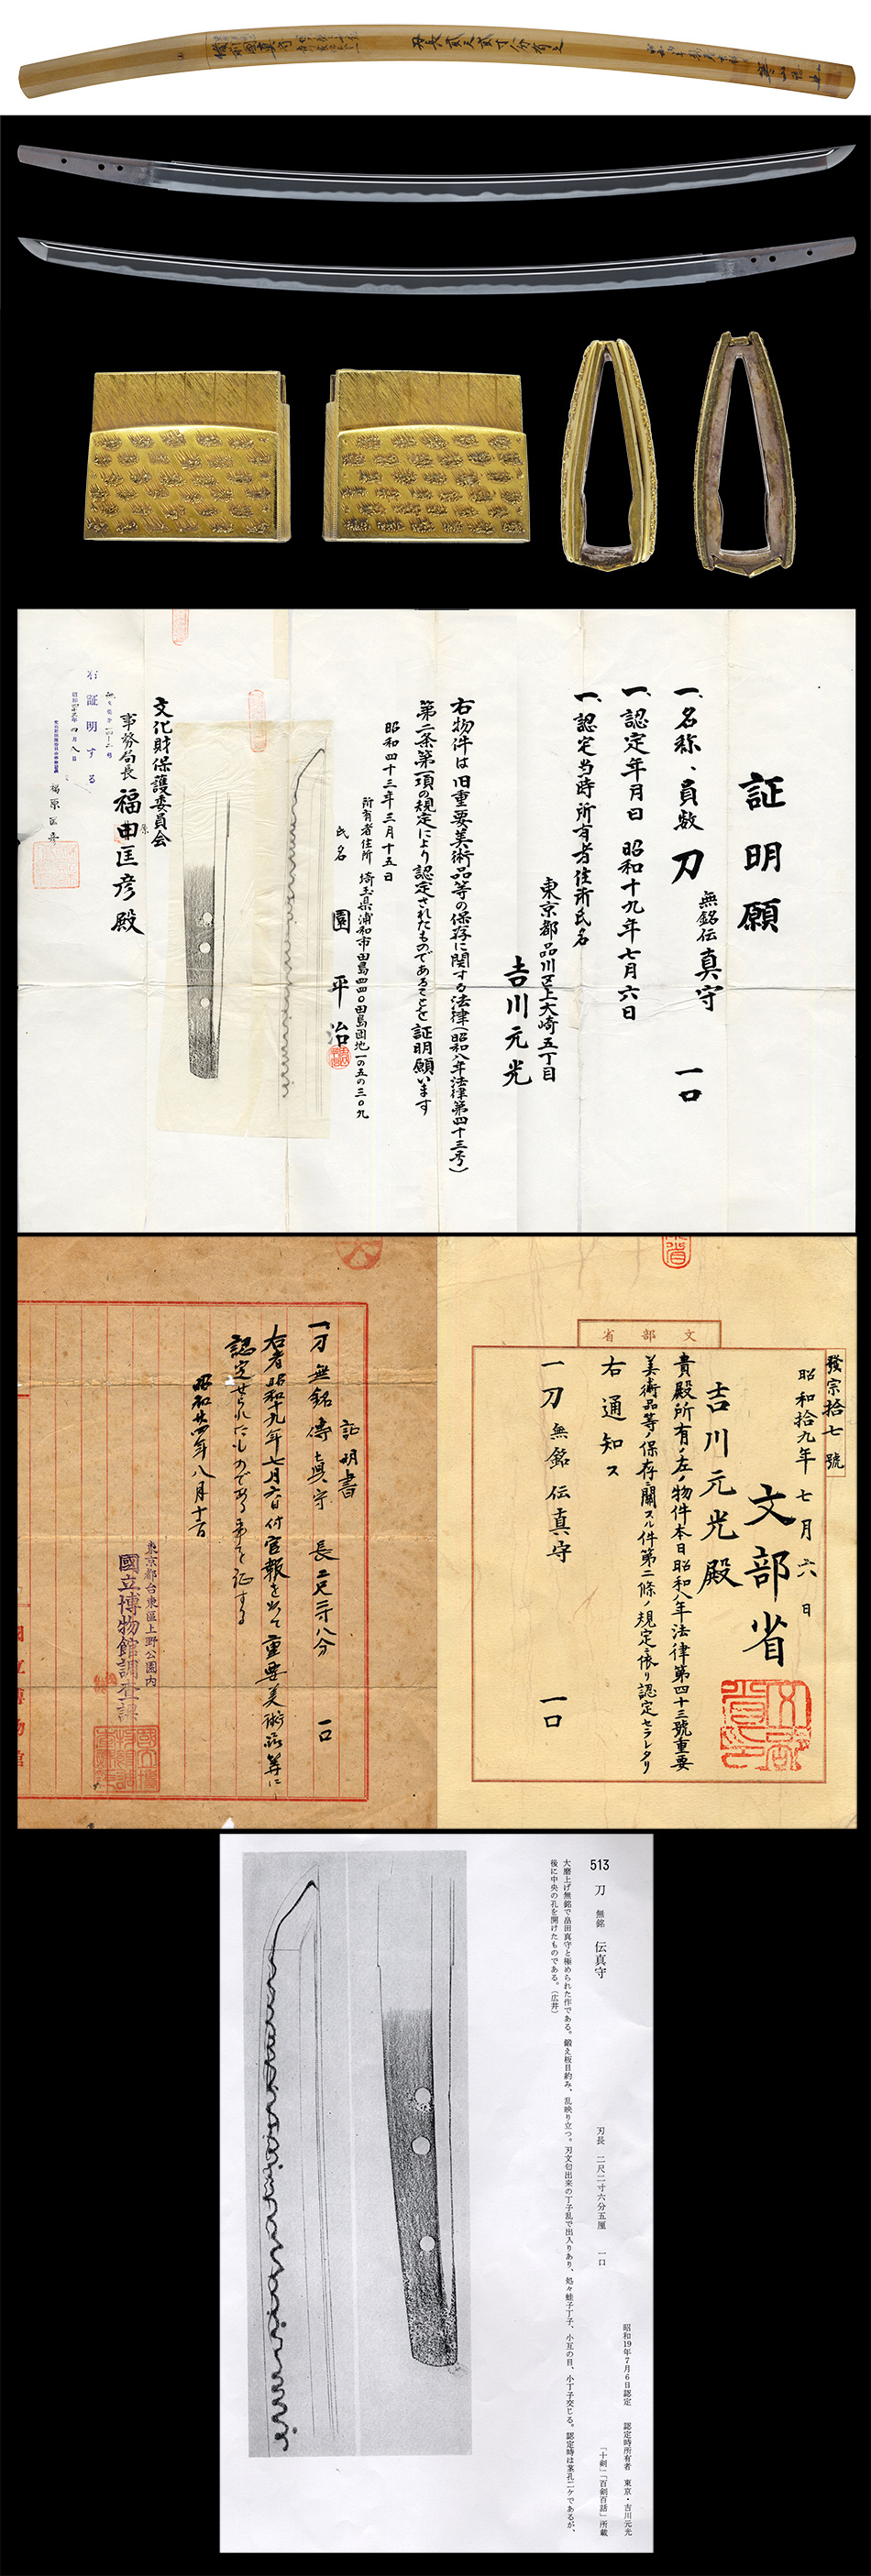 備前國真守
刃長貳尺貳寸
証明願
一、名称、員数 刀 無銘伝真守 一口
一、認定年月日 昭和十九年七月六日
一、認定当時所有者住所氏名
東京都品川区上大崎五丁目
吉川元光
右物件は旧重要美術品等の保存に関する法律(昭和八年法律第四十三号)
第二条第一項の規定により認定されたものであることを証明願います
昭和四十三年三月十五日
所有者住所 埼玉県浦和市田島四四〇田島団地一の五の三〇九
氏名 園平治
文化財保護委員会
事務局長 福原匡彦殿
右証明する
福原匡彦
發宗拾七號
昭和拾九年七月六日
文部省
吉川元光殿
貴殿所有ノ左ノ物件本日昭和八年法律第四十三號重要
美術品等ノ保存ニ關スル件第二條ノ規定ニ依リ認定セラレタリ
右通知ス
一刀 無銘 伝真守 一口
文部省
証明書
一刀 無銘 傳真守 長二尺二寸八分 一口
右者昭和十九年七月六日付官報を以て重要美術品等に
認定せられたものである事を証する
昭和廿四年八月十二日
東京都台東區上野公園内
國立博物館調査課
513 刀 無銘 伝真守 刃長 二尺二寸六分五厘 一口
昭和19年7月6日認定 認定時所有者 東京・吉川元光
「十剣」「百剣百話」所載
大磨上げ無銘で畠田真守と極められた作である。鍛え板目約み、乱映り立つ。刃文匂出来の丁子乱で出入りあり、処々蛙子丁子、小互の目、小丁子交じる。認定時は茎孔二ケであるが、
後に中央の孔を開けたものである。(広井)